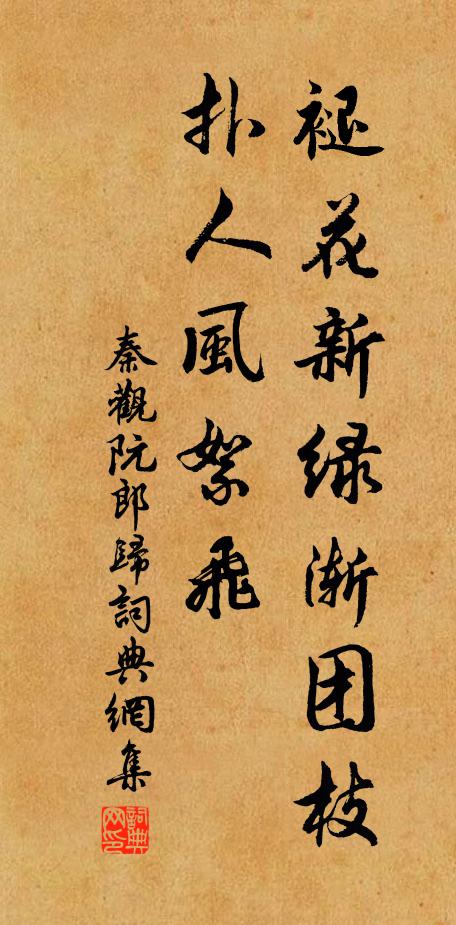 褪花新绿渐团枝
扑人風絮飛
秦觀阮郎歸詞典網集
詞典网印